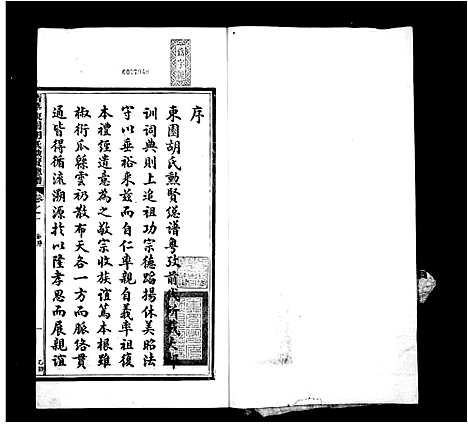 序
東園胡氏勲賢總譜粵攷前代所載大都
訓詞典則上追祖功宗德踏揚休美昭法
守以垂裕來茲而自仁率親自義率祖復
本禮經遺意為之敬宗收族誼篤本根雖
椒衍瓜緜雲礽散布天各一方而脈絡貫
通皆得循流溯源於以隆孝思而展親誼